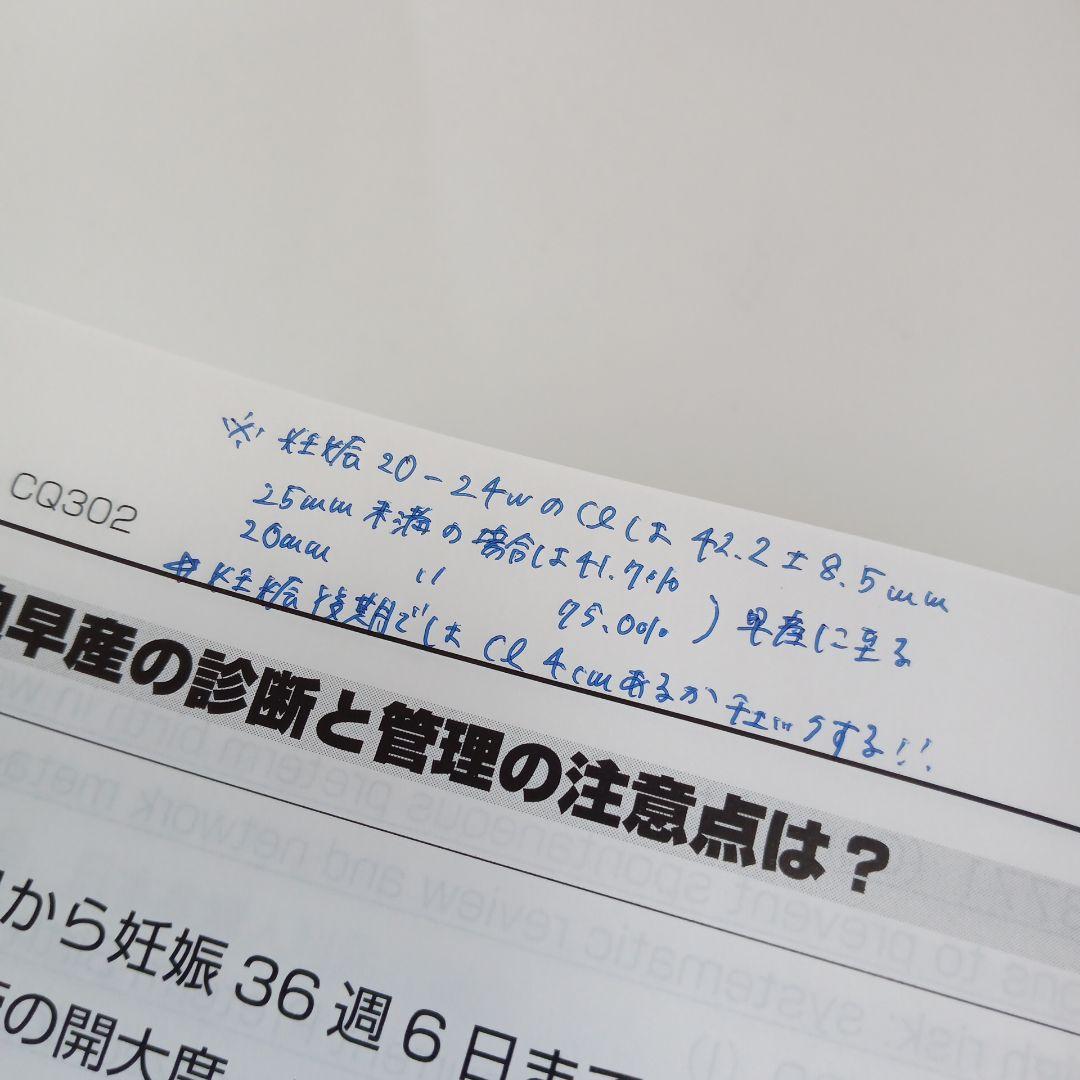 ※ 妊娠 20-24wのCℓは 42.2±8.5mm
CQ302
25mm 未満の場合は41.7%
20mm 〃 75.0% ) 早産に至る
妊娠後期では Cℓ 4cmあるかチェックする!!
早産の診断と管理の注意点は？
から妊娠 36 週 6 日まで
の開大度